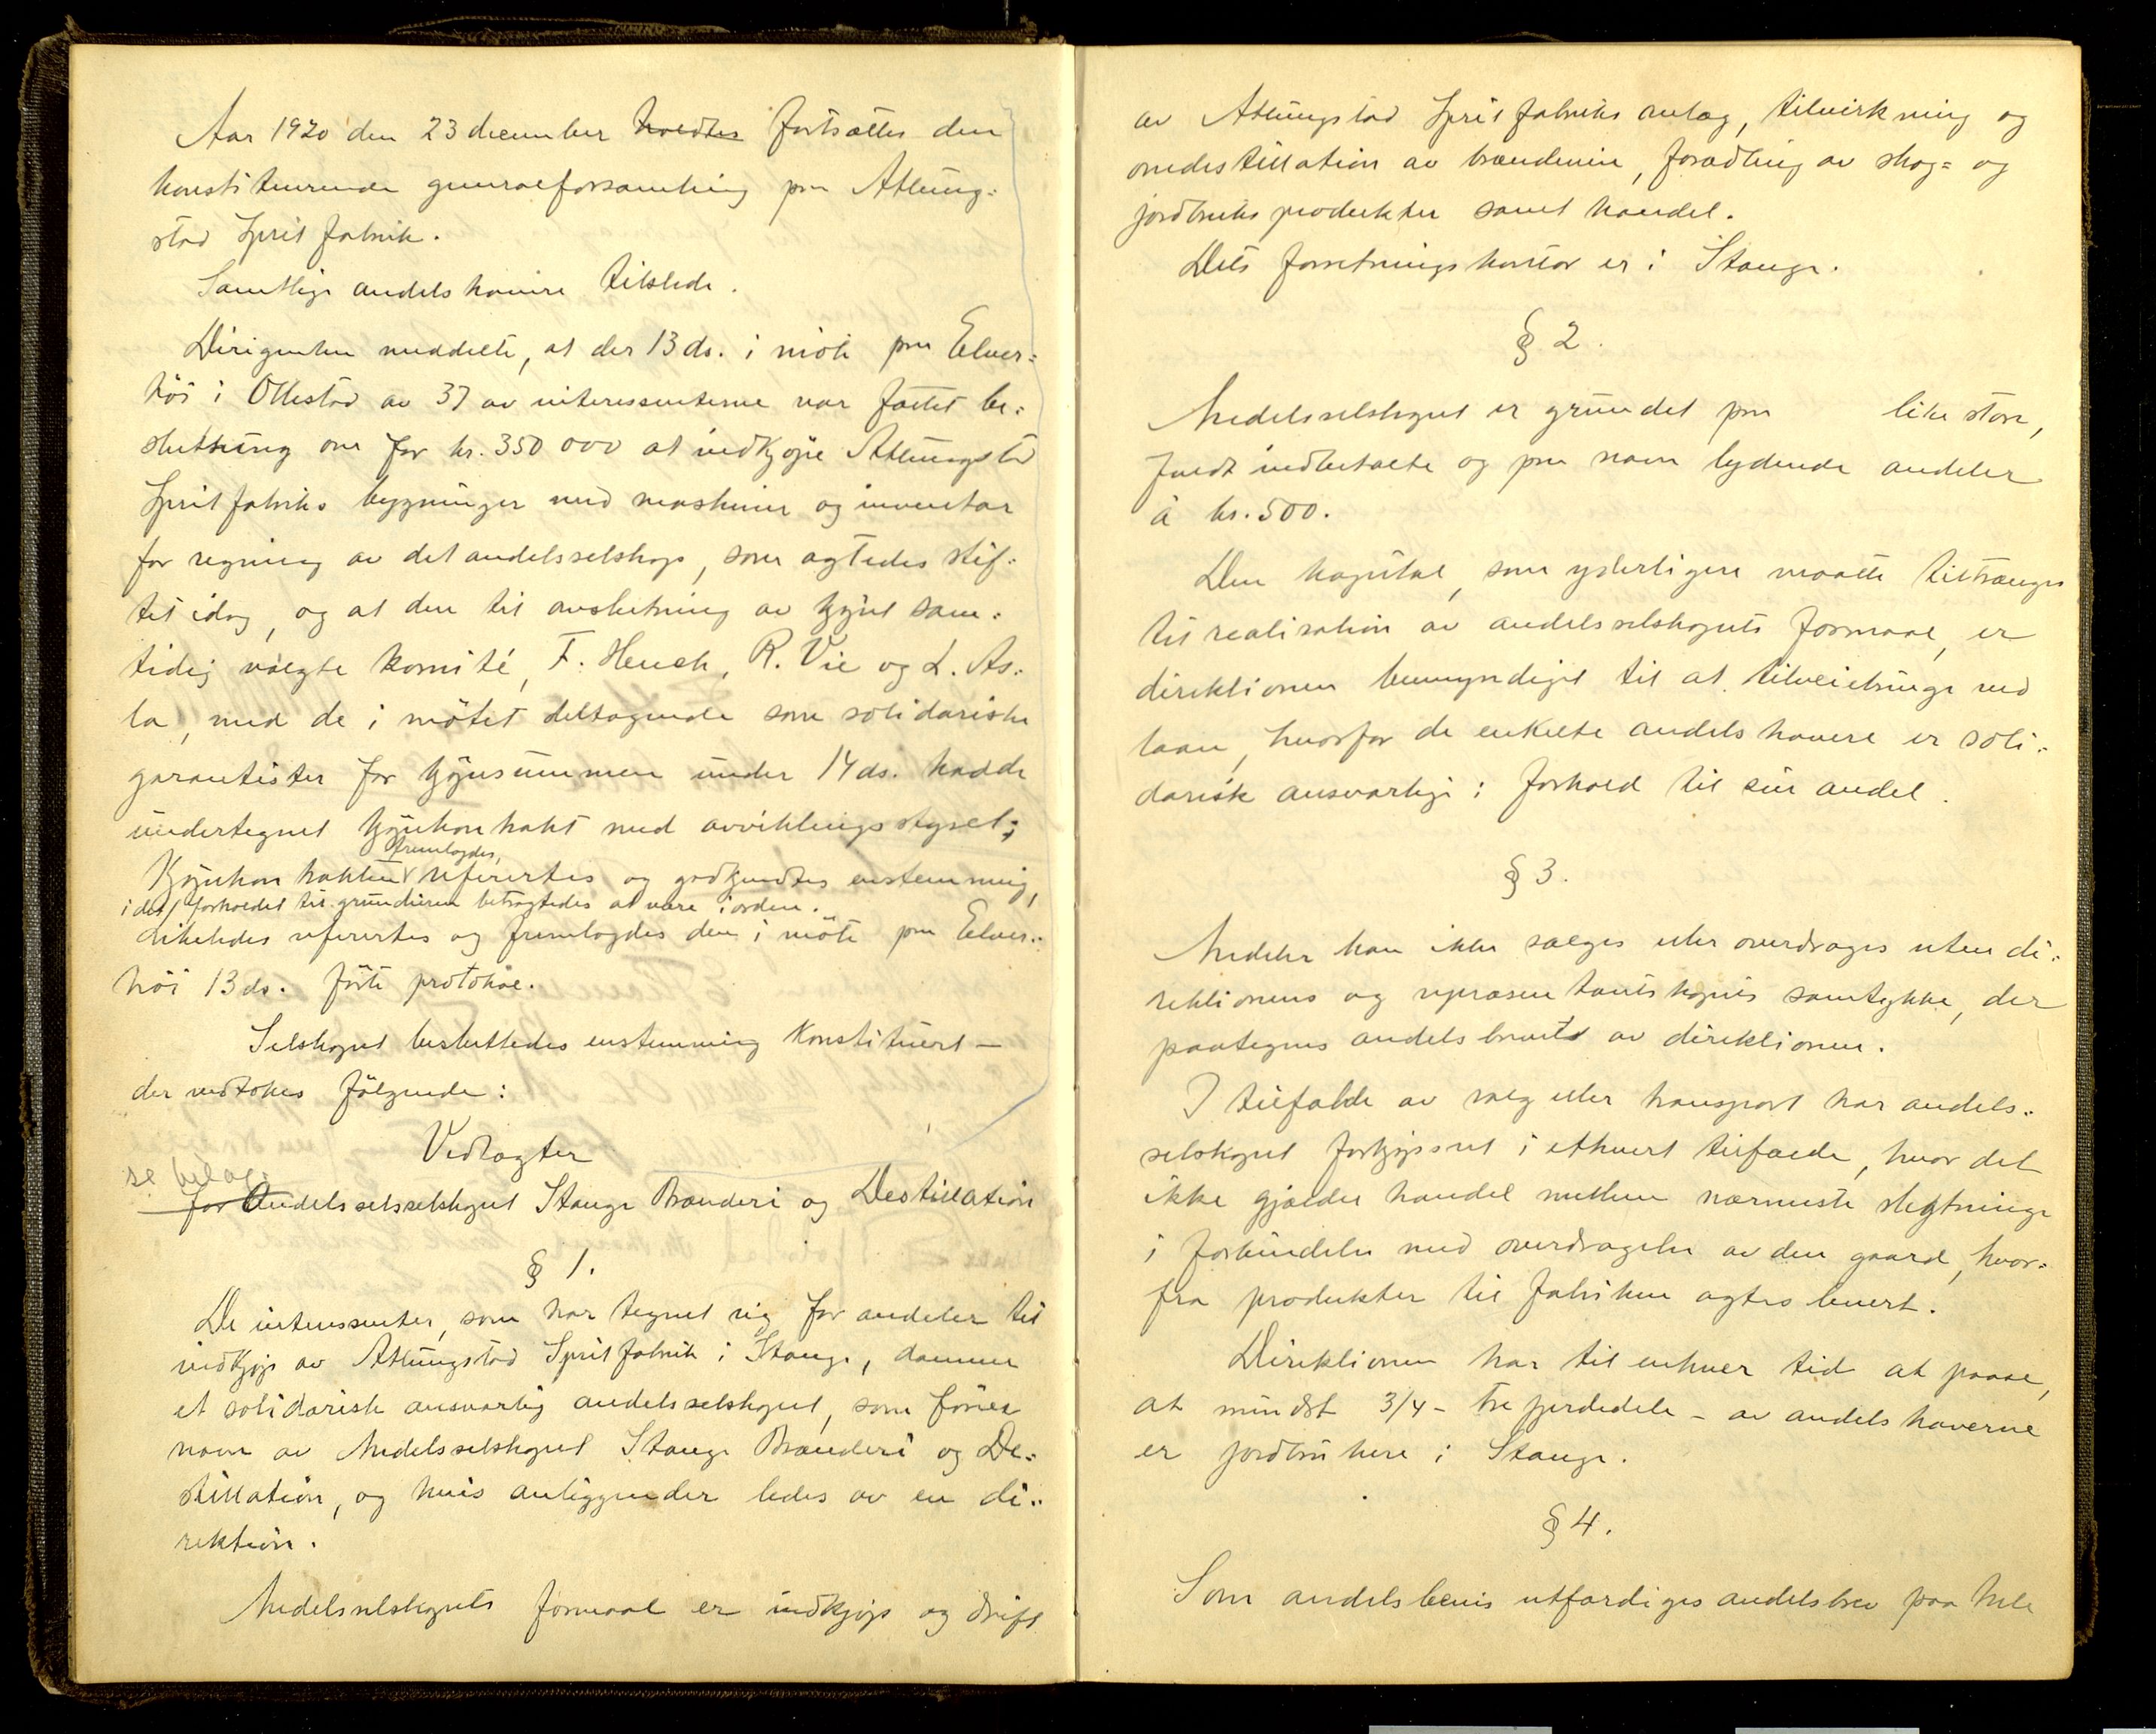 Aar 1920 den 23 december holdtes fortsattes den
konstituerende generalforsamling paa Atlung=
stad Spritfabrik.
Samtlige andelshavere tilstede.
Dirigenten meddelte, at der 13 ds. i möte paa Elver=
höi i Ottestad av 37 av interessenterne var fattet be=
slutning om for kr. 350 000 at indkjøpe Atlungstad
Spritfabriks bygninger med maskiner og inventar
for regning av det andelsselskap, som agtedes stif=
tet idag, og at den til avslutning av kjøpet sam=
tidig valgte komité, F. Heuch, R. Vie og L. As=
la, med de i mötet deltagende som solidariske
garantister for kjøpesummen under 14 ds. hadde
undertegnet kjøpekontrakt med avviklingsstyret;
fremlagdes,
Kjøpekontrakten referertes og godkjendtes enstemmig,
idet forholdet til grundeieren betragtedes at være i orden.
Likeledes referertes og fremlagdes den i möte paa Elver=
höi 13 ds. förte protokol.
Selskapet besluttedes enstemmig konstituert -
der vedtokes fölgende:
Vedtægter
se bilag
for Andelsselsselskapet Stange Brænderi og Destillation
§ 1.
De interessenter, som har tegnet sig for andeler til
indkjøp av Atlungstad Spritfabrik i Stange, danner
et solidarisk ansvarlig andelsselskapet, som förer
navn av Andelsselskapet Stange Brænderi og De=
stillation, og hvis anliggender ledes av en di=
rektion.
Andelsselskapets formaal er indkjøp og drift
av Atlungstad Spritfabriks anlæg, tilvirkning og
omdestillation av brændevin, forædling av skog= og
jordbruksprodukter samt handel.
Dets forretningskontor er i Stange.
§ 2.
Andelsselskapet er grundet paa like store,
fuldt indbetalte og paa navn lydende andeler
à kr. 500.
Den kapital, som yderligere maatte tiltrænges
til realisation av andelsselskapets formaal, er
direktionen bemyndiget til at tilveiebringe ved
laan, hvorfor de enkelte andelshavere er soli=
darisk ansvarlige i forhold til sin andel.
§ 3.
Andeler kan ikke sælges eller overdrages uten di=
rektionens og repræsentantskapets samtykke, der
paategnes andelsbrevet av direktionen.
I tilfælde av salg eller transport har andels=
selskapet forkjøpsret i ethvert tilfælde, hvor det
ikke gjælder handel mellem nærmeste slegtninge
i forbindelse med overdragelse av den gaard, hvor=
fra produkter til fabriken agtes levert.
Direktionen har til enhver tid at paase,
at mindst 3/4 - tre fjerdedele - av andelshaverne
er jordbrukere i Stange.
§ 4.
Som andelsbevis utfærdiges andelsbrev paa hele